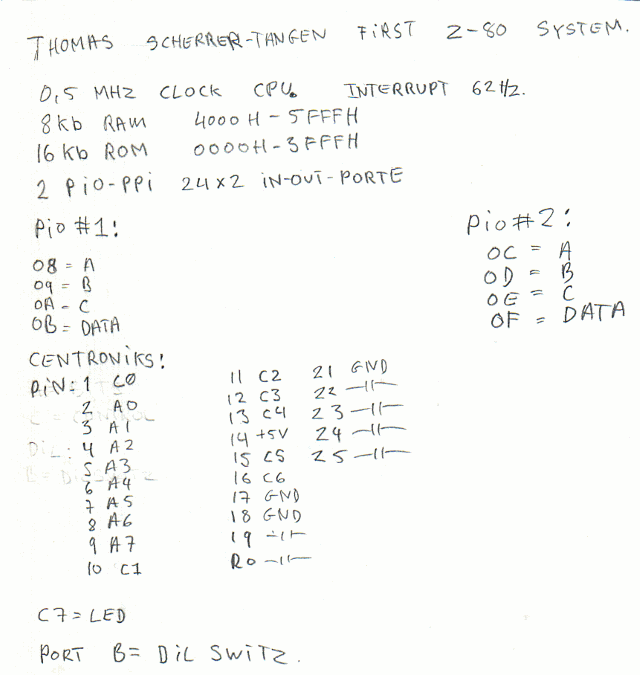 THOMAS SCHERRER-TANGEN FIRST Z-80 SYSTEM.
0,5 MHZ CLOCK CPU. INTERRUPT 62Hz.
8kb RAM 4000H-5FFFH
16 Kb ROM 0000H-3FFFH
2 PiO-PPi 24x2 iN-OUT-PORTE
Pio #1:
08 = A
09 = B
0A - C
0B = DATA
Pio #2:
0C = A
0D = B
0E = C
0F = DATA
CENTRONiKS:
PiN: 1 C0
2 A0
3 A1
4 A2
5 A3
6 A4
7 A5
8 A6
9 A7
10 C1
11 C2
12 C3
13 C4
14 +5V
15 C5
16 C6
17 GND
18 GND
19 -11-
R0 -11-
21 GND
22 -11-
23 -11-
24 -11-
25 -11-
C7 = LED
PORT B = DiL SWiTZ.